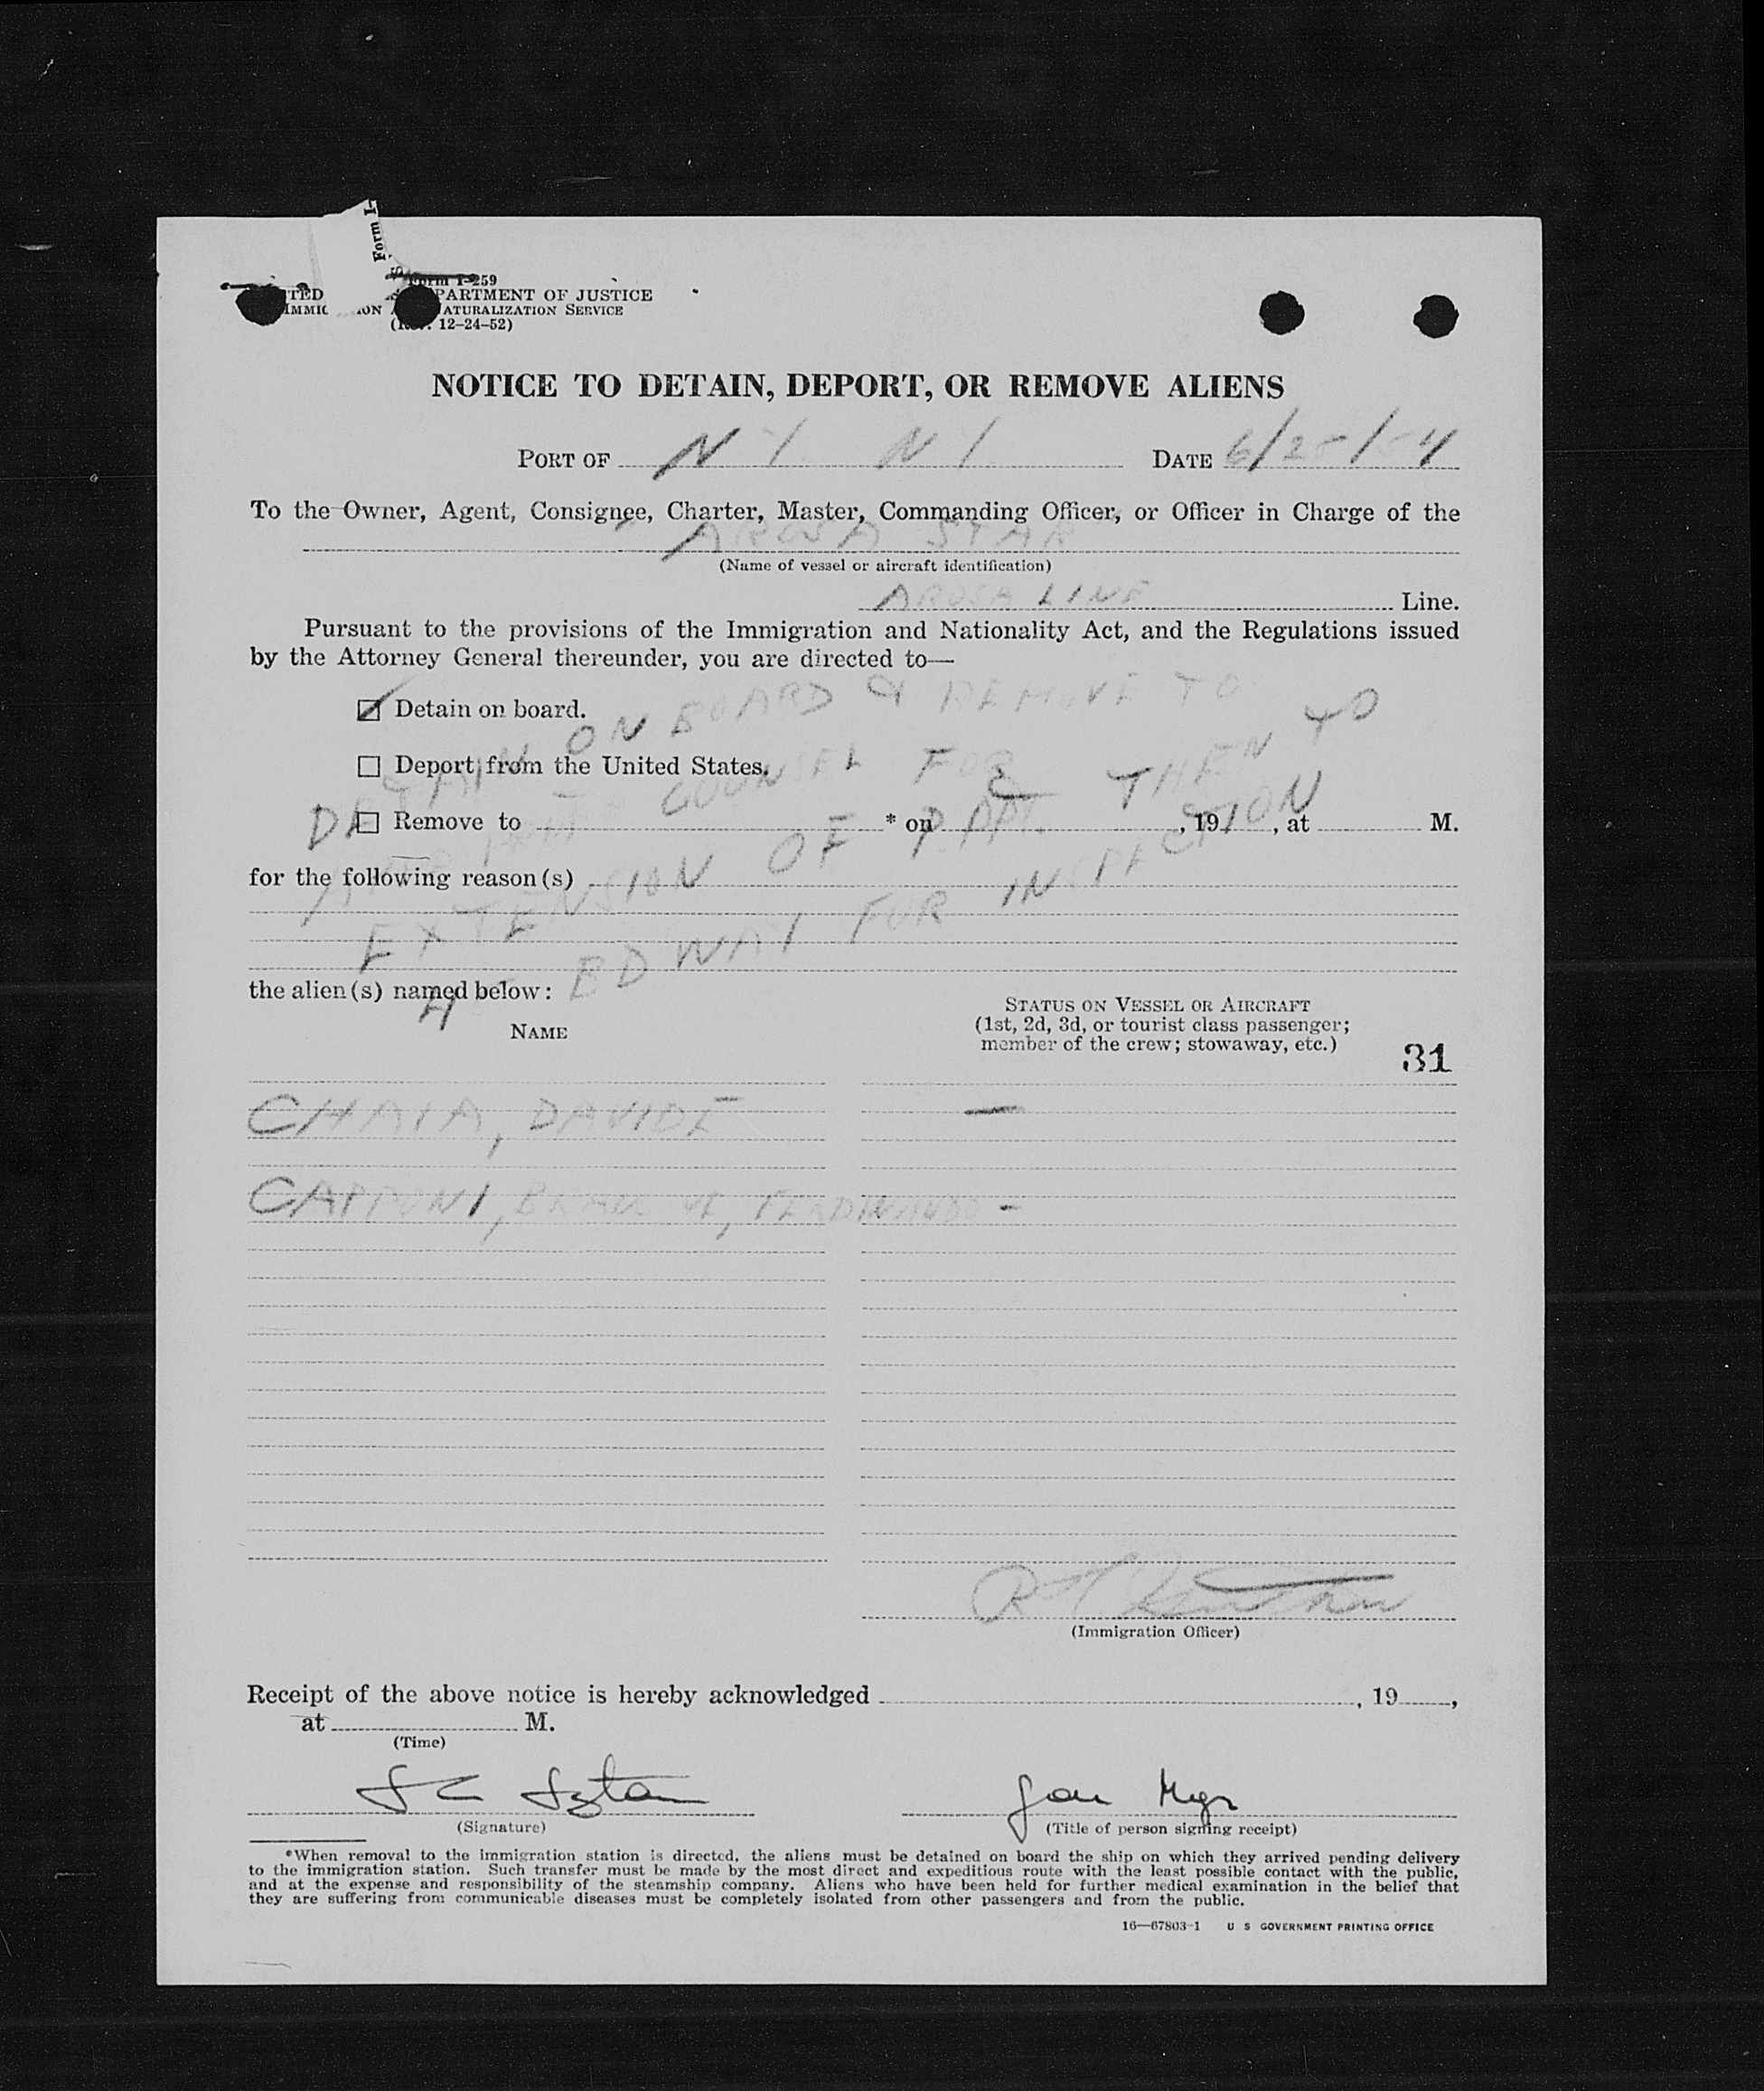 Form I-
Form I-259
PARTMENT OF JUSTICE
ATURALIZATION SERVICE
12–24–52)
NOTICE TO DETAIN, DEPORT, OR REMOVE ALIENS
PORT OF N Y N Y DATE 6/25/54
To the Owner, Agent, Consignee, Charter, Master, Commanding Officer, or Officer in Charge of the
AROSA STAR
(Name of vessel or aircraft identification)
AROSA LINE Line.
Pursuant to the provisions of the Immigration and Nationality Act, and the Regulations issued
by the Attorney General thereunder, you are directed to—
Detain on board.
Deport from the United States.
Remove to * on , 19 , at M.
for the following reason(s)
DETAIN ON BOARD & REMOVE TO
COUNSEL FOR THEN TO
EXTENSION OF PPT.
BDWAY FOR INSPECTION
the alien(s) named below:
NAME
STATUS ON VESSEL OR AIRCRAFT
(1st, 2d, 3d, or tourist class passenger;
member of the crew; stowaway, etc.)
31
CHAIA, DAVIDE —
CAPPONI, FERDINANDO -
(Immigration Officer)
Receipt of the above notice is hereby acknowledged , 19 ,
at M.
(Time)
Gen Mgr
(Signature)
(Title of person signing receipt)
*When removal to the immigration station is directed, the aliens must be detained on board the ship on which they arrived pending delivery
to the immigration station. Such transfer must be made by the most direct and expeditious route with the least possible contact with the public,
and at the expense and responsibility of the steamship company. Aliens who have been held for further medical examination in the belief that
they are suffering from communicable diseases must be completely isolated from other passengers and from the public.
16—67803-1 U S GOVERNMENT PRINTING OFFICE